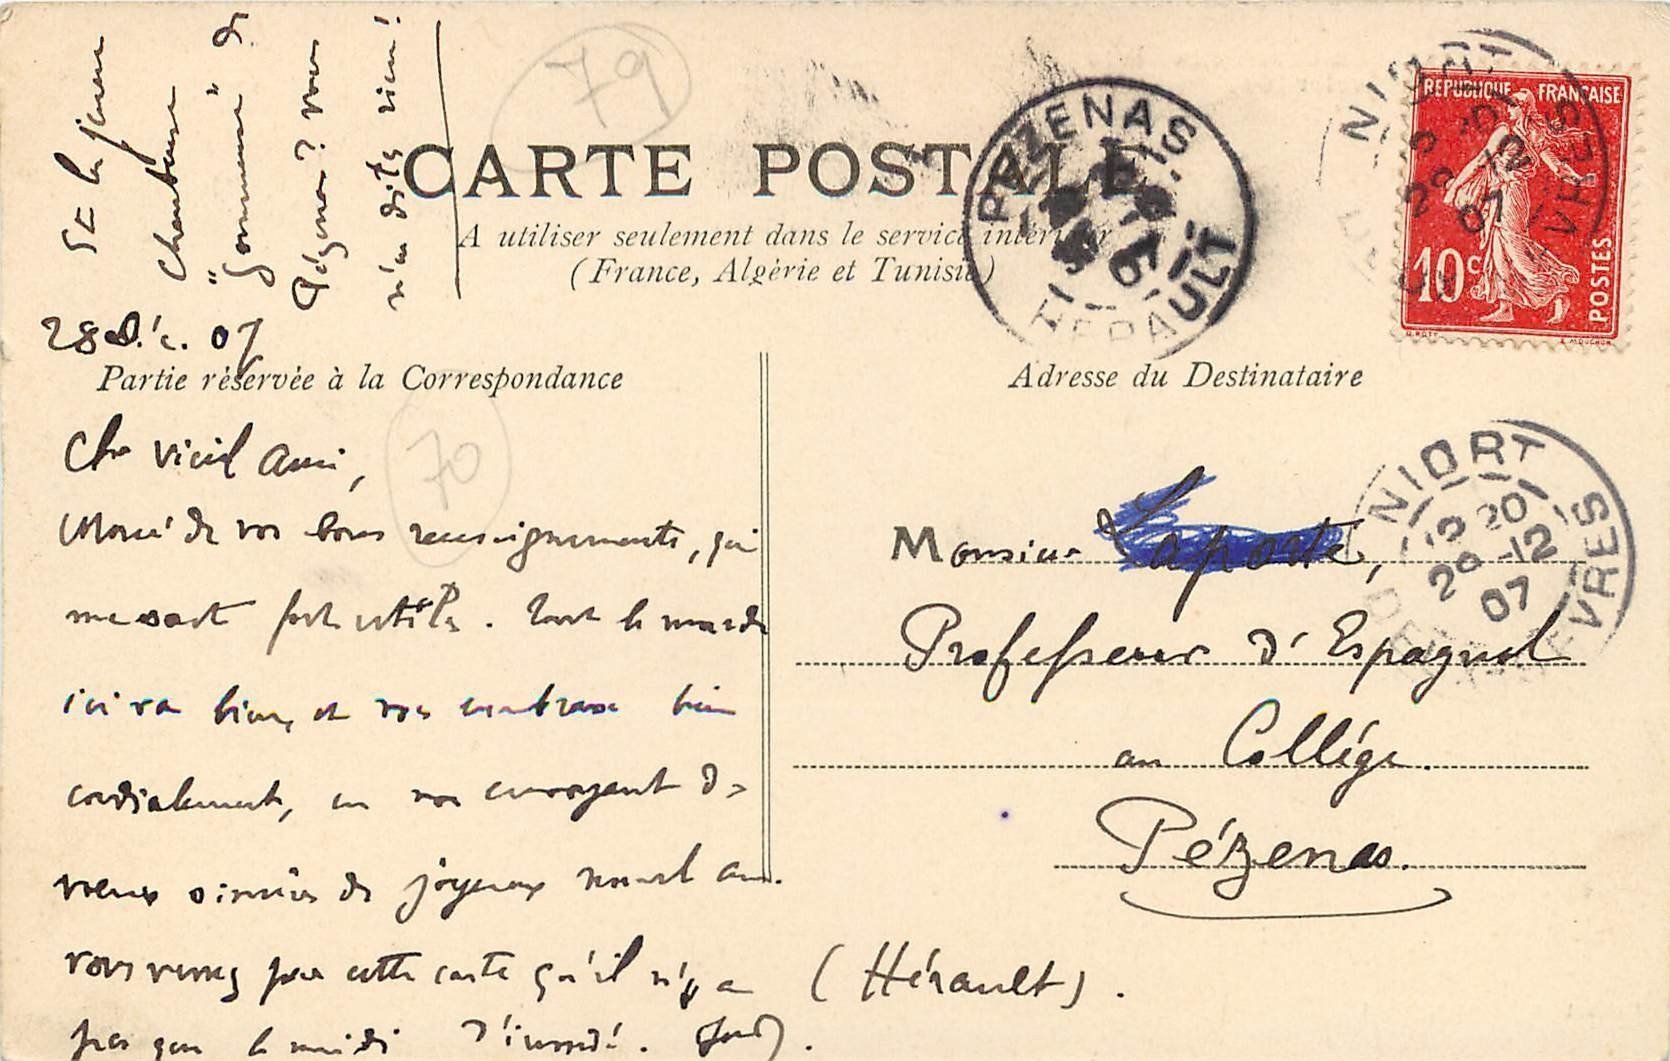 Et la jeune
chanteuse
"gommeuse" de
Pézenas? Vous
n'en dites rien!
79
CARTE POSTALE
A utiliser seulement dans le service intérieur
(France, Algérie et Tunisie)
PEZENAS
HERAULT
REPUBLIQUE FRANÇAISE
10c
POSTES
O. ROTY
E. MOUCHON
NIORT
28 Déc. 07
Partie réservée à la Correspondance
Adresse du Destinataire
70
Cher Vieil Ami,
Merci de vos bons renseignements, qui
me sont fort utiles. Tout le monde
ici va bien, et vous embrasse bien
cordialement, en vous envoyant de
vœux sincères de joyeux nouvel an.
Vous verrez par cette carte qu'il n'y a
pas que le midi d'inondé.
Monsieur Laporte,
Professeur d'Espagnol
au Collège.
Pézenas.
(Hérault).
NIORT
20
29 -12
07
DEUX SEVRES